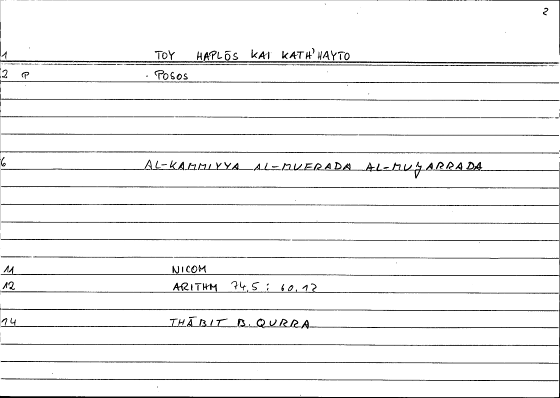 2
1 TOY HAPLŌS KAI KATH'HAYTO
2 P · POSOS
6 AL-KAMMIYYA AL-MUFRADA AL-MUǦARRADA
11 NICOM
12 ARITHM 74,5 : 60,12
14 THĀBIT B. QURRA